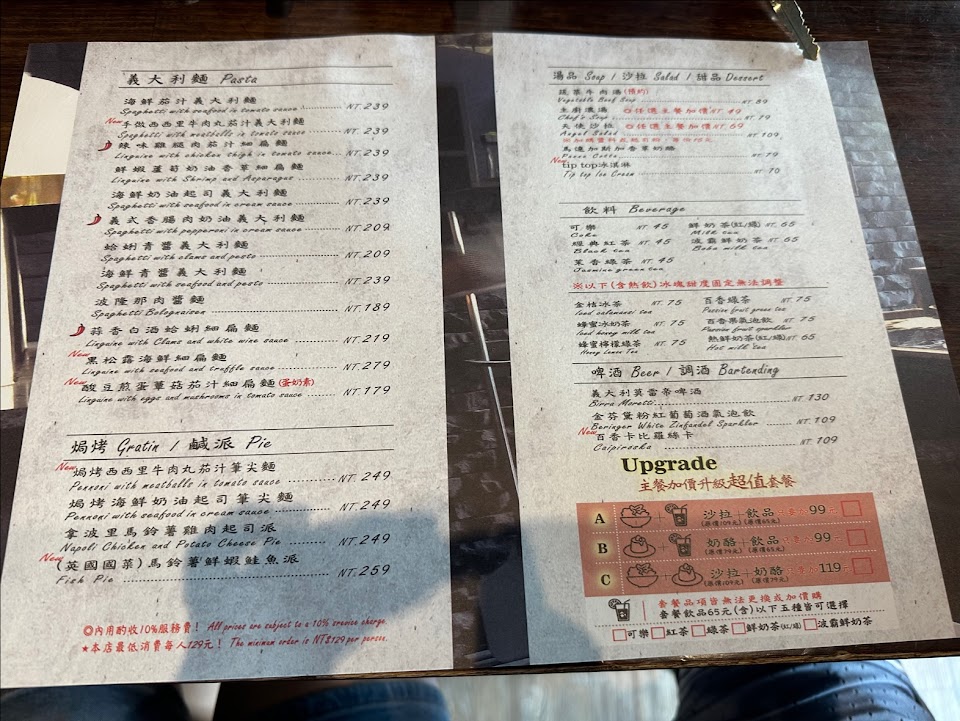 義大利麵 Pasta
海鮮茄汁義大利麵
Spaghetti with seafood in tomato sauce NT.239
New 手做西西里牛肉丸茄汁義大利麵
Spaghetti with meatballs in tomato sauce NT.239
辣味雞腿肉茄汁細扁麵
Linguine with chicken thigh in tomato sauce NT.239
鮮蝦蘆筍奶油香草細扁麵
Linguine with Shrimp and Asparagus NT.239
海鮮奶油起司義大利麵
Spaghetti with seafood in cream sauce NT.239
義式香腸肉奶油義大利麵
Spaghetti with pepperoni in cream sauce NT.209
蛤蜊青醬義大利麵
Spaghetti with clams and pesto NT.209
海鮮青醬義大利麵
Spaghetti with seafood and pesto NT.239
波隆那肉醬麵
Spaghetti Bolognaison NT.189
蒜香白酒蛤蜊細扁麵
Linguine with Clams and white wine sauce NT.219
New 黑松露海鮮細扁麵
Linguine with seafood and truffle sauce NT.279
New 酸豆煎蛋蕈菇茄汁細扁麵(蛋奶素)
Linguine with eggs and mushrooms in tomato sauce NT.179
焗烤 Gratin / 鹹派 Pie
New 焗烤西西里牛肉丸茄汁筆尖麵
Pennoni with meatballs in tomato sauce NT.249
焗烤海鮮奶油起司筆尖麵
Pennoni with seafood in cream sauce NT.249
拿波里馬鈴薯雞肉起司派
Napoli Chicken and Potato Cheese Pie NT.249
New (英國國菜)馬鈴薯鮮蝦鮭魚派
Fish Pie NT.259
◎內用酌收10%服務費！ All prices are subject to a 10% srevice charge
★本店最低消費每人129元！ The minimum order is NT$129 per person.
湯品 Soup / 沙拉 Salad / 甜品 Dessert
蔬菜牛肉湯(預約)
Vegetable Beef Soup NT 89
主廚濃湯 ◎任選主餐加價NT 49
Chef's Soup NT 79
天使沙拉 ◎任選主餐加價NT 69
Angel Salad NT 109
馬達加斯加香草奶酪
Panna Cotta NT 79
New tip top冰淇淋
Tip top Ice Cream NT 70
飲料 Beverage
可樂 NT 45 鮮奶茶(紅/綠) NT 65
Coke Milk tea
經典紅茶 NT 45 波霸鮮奶茶 NT 65
Black tea Boba milk tea
茉香綠茶 NT 45
Jasmine green tea
※以下(含熱飲)冰塊甜度固定無法調整
金桔冰茶 NT. 75 百香綠茶 NT 75
Iced calamansi tea Passion fruit green tea
蜂蜜冰奶茶 NT 75 百香果氣泡飲 NT 75
Iced honey milk tea Passion fruit sparkler
蜂蜜檸檬綠茶 NT 75 熱鮮奶茶(紅/綠) NT 65
Honey Lemon Tea Hot milk tea
啤酒 Beer / 調酒 Bartending
義大利莫雷帝啤酒
Birra Moretti NT 130
金芬黛粉紅葡萄酒氣泡飲
Beringer White Zinfandel Sparkler NT 109
New 百香卡比羅絲卡
Caipiroska NT 109
Upgrade
主餐加價升級超值套餐
A 沙拉+飲品 只要加99元
(原價109元) (原價65元)
B 奶酪+飲品 只要加99元
(原價79元) (原價65元)
C 沙拉+奶酪 只要加119元
(原價109元) (原價79元)
套餐品項皆無法更換或加價購
套餐飲品65元(含)以下五種皆可選擇
可樂 紅茶 綠茶 鮮奶茶(紅/綠) 波霸鮮奶茶